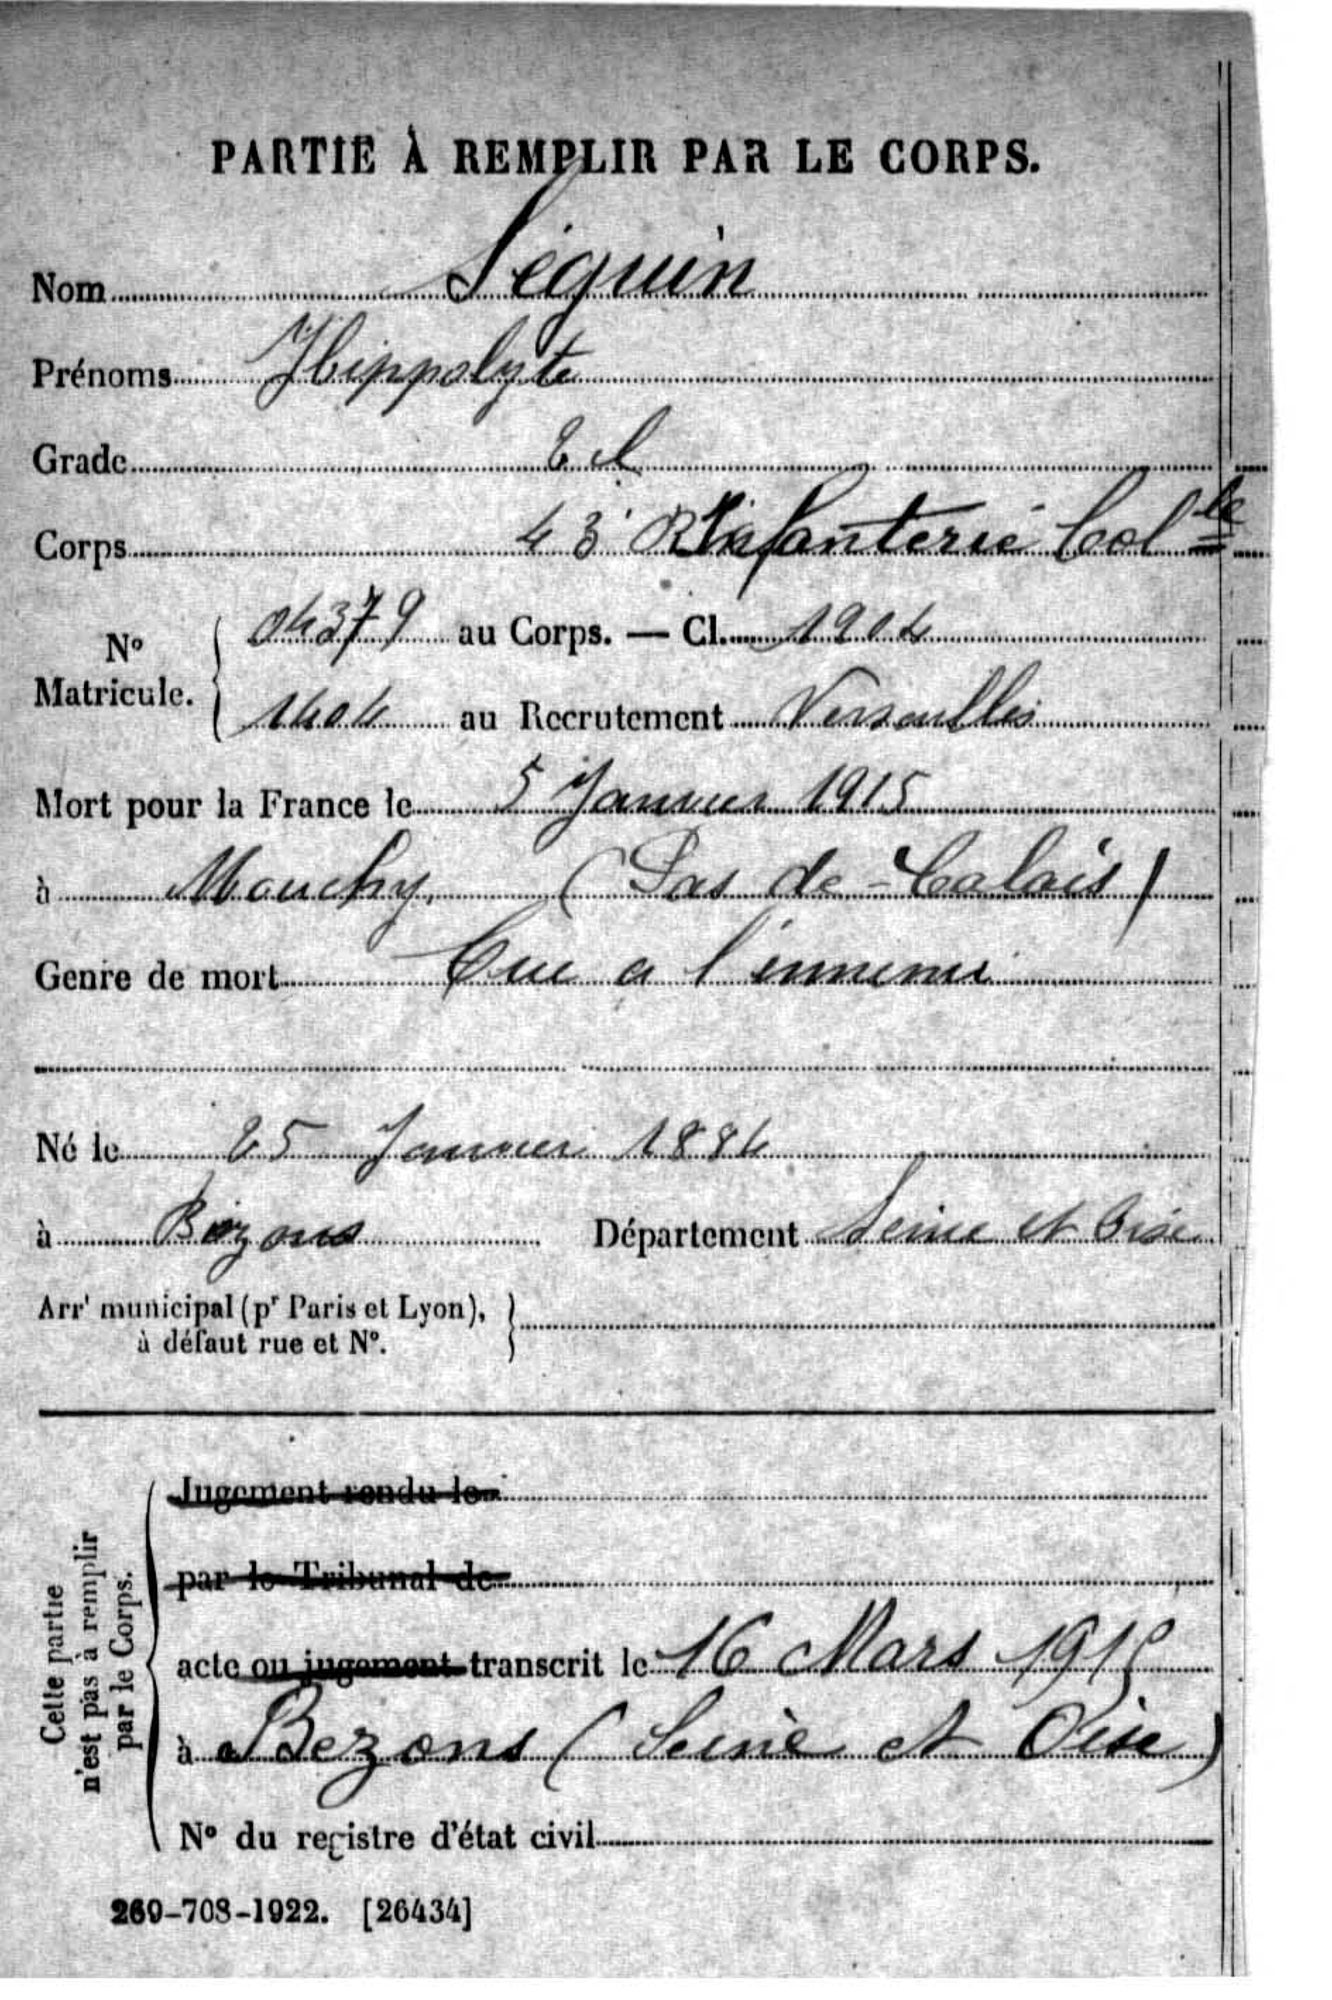 PARTIE À REMPLIR PAR LE CORPS.
Nom Séguin
Prénoms Hippolyte
Grade 2 cl
Corps 43 RInfanterie Colle
No Matricule. 04379 au Corps. — Cl. 1904
1404 au Recrutement Versailles
Mort pour la France le 5 Janvier 1915
à Mouchy (Pas de-Calais)
Genre de mort Tue a l'ennemi
Né le 25 Janvier 1884
à Bezons Département Seine et Oise
Arrt municipal (pr Paris et Lyon),
à défaut rue et No.
Cette partie
n'est pas à remplir
par le Corps.
Jugement rendu le
par le Tribunal de
acte ou jugement transcrit le 16 Mars 1915
à Bezons (Seine et Oise)
No du registre d'état civil
269-708-1922. [26434]